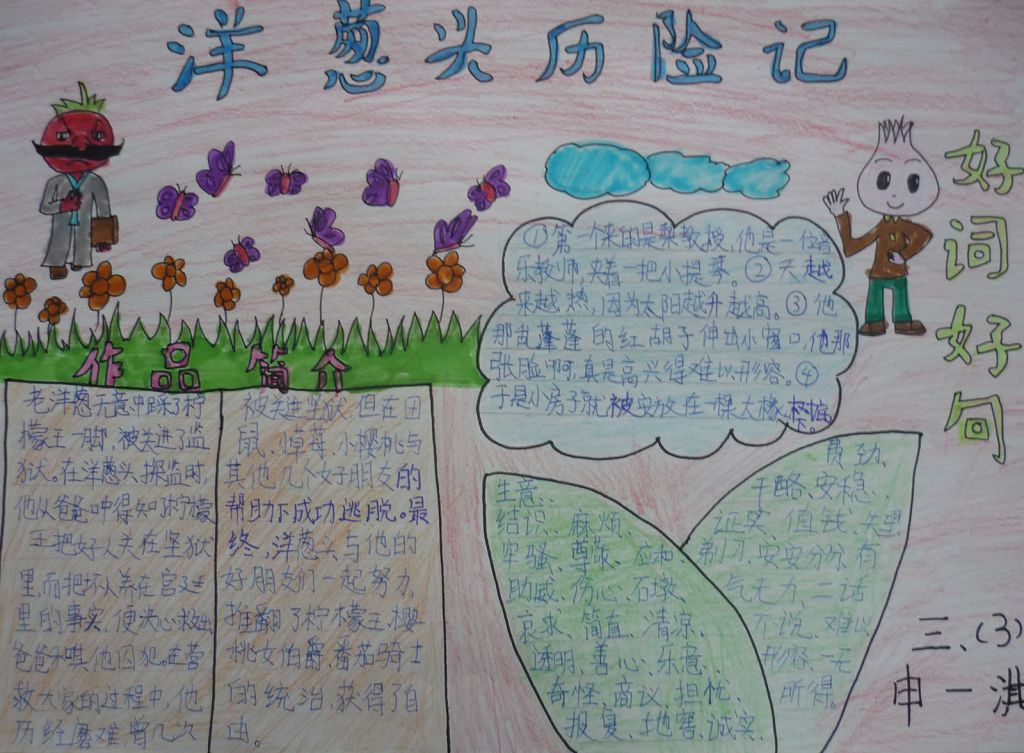 洋葱头历险记
好词好句
①第一个来的是梨教授,他是一位音
乐教师夹着一把小提琴。②天越
来越热,因为太阳越升越高。③他
那乱蓬蓬的红胡子伸出小窗口,他那
张脸啊,真是高兴得难以形容。④
于是小房子就被安放在一棵大橡树
作品简介
老洋葱无意中踩了柠
檬王一脚,被关进了监
狱。在洋葱头探监时,
他从爸爸口中得知了柠檬
王把好人关在坚狱
里,而把坏人养在宫廷
里的事实,便决心救出
爸爸和其他囚犯。在营
救大家的过程中,他
历经磨难,曾几次
被关进坚狱,但在田
鼠、草莓、小樱桃与
其他几个好朋友的
帮助下成功逃脱。最
终,洋葱头与他的
好朋友们一起努力,
推翻了柠檬王、樱
桃女伯爵、番茄骑士
的统治,获得了自
由。
生意、
结识、麻烦、
牢骚、尊敬、应和
助威、伤心、石墩、
哀求、简直、清凉、
透明、善心、乐意、
奇怪、商议、担忧、
报复、地窖、诚实、
费劲、
干酪、安稳、
证实、值钱、失望
剃刀、安安分分、有
气无力、二话
不说、难以
形容、一无
所得。
三、(3)
申一淇